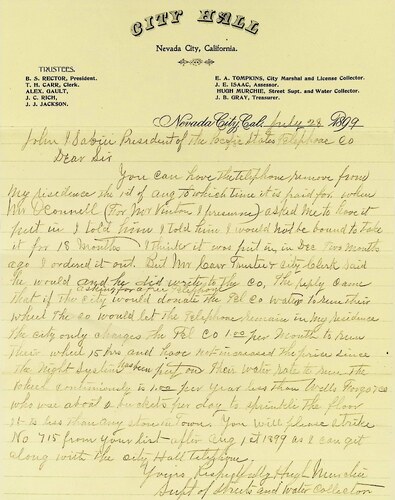 CITY HALL
Nevada City, California.
TRUSTEES.
B. S. RECTOR, President.
T. H. CARR, Clerk.
ALEX. GAULT,
J. C. RICH,
J. J. JACKSON.
E. A. TOMPKINS, City Marshal and License Collector.
J. E. ISAAC, Assessor.
HUGH MURCHIE, Street Supt. and Water Collector.
J. B. GRAY, Treasurer.
Nevada City, Cal. July 28 1899
John I Sabin President of the Pacific States Telephone Co
Dear Sir
You can have the telephone remove from
My residence the 1st of Aug to which time it is paid for. when
Mr O'Connell (For Mr Vinton I presume) asked me to have it
put in I told him I told him I would not be bound to take
it for 18 months I think it was put in in Dec Two month
ago I ordered it out. But Mr Carr Trustee & City Clerk said
he would and he did write to the Co,
asking for a free telephone
The reply came
that if the city would donate the Tel Co Water to run their
Wheel the Co would let the Telephone remain in my residence
the city only charges the Tel Co 1.00 per Month to run
their wheel 15 hrs and have not increased the price since
the Night System has been put on Their water rate to run the
Wheel continuously is per year less than Wells Fargo & Co
who use about 2 buckets per day to sprinkle the floor
it is less than any store in town. You will please strike
No 715 from your list after Aug 1st 1899 as I can get
along with the City Hall telephone
Yours Respectfully Hugh Murchie
Supt of Streets and Water Collector